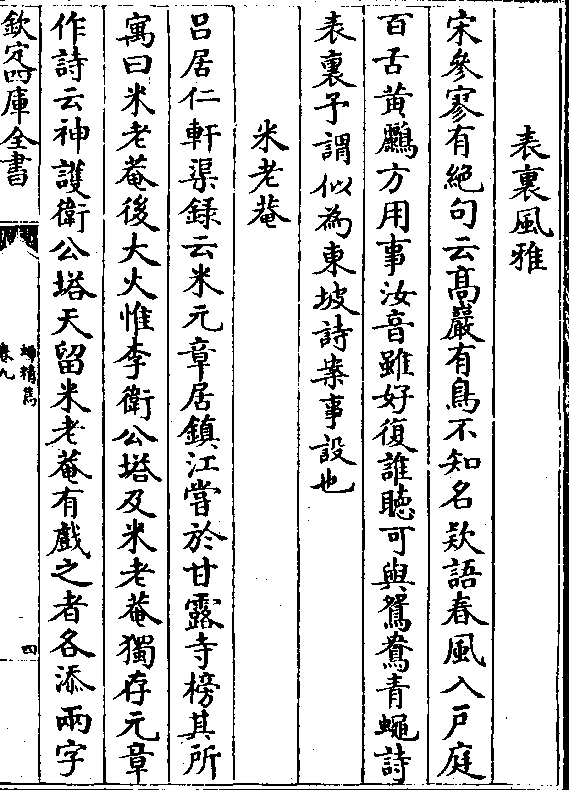 表裏風雅
宋參寥有絶句云髙巖有鳥不知名欵語春風入戸庭
百舌黄鸝方用事汝音雖好復誰聽可與鴛鴦青蠅詩
表裏予謂似為東坡詩案事設也
米老菴
吕居仁軒渠録云米元章居鎮江嘗於甘露寺榜其所
寓曰米老菴後大火惟李衛公塔及米老菴獨存元章
作詩云神護衛公塔天留米老菴有戲之者各添兩字
欽定四庫全書
蟫精雋
卷九
四